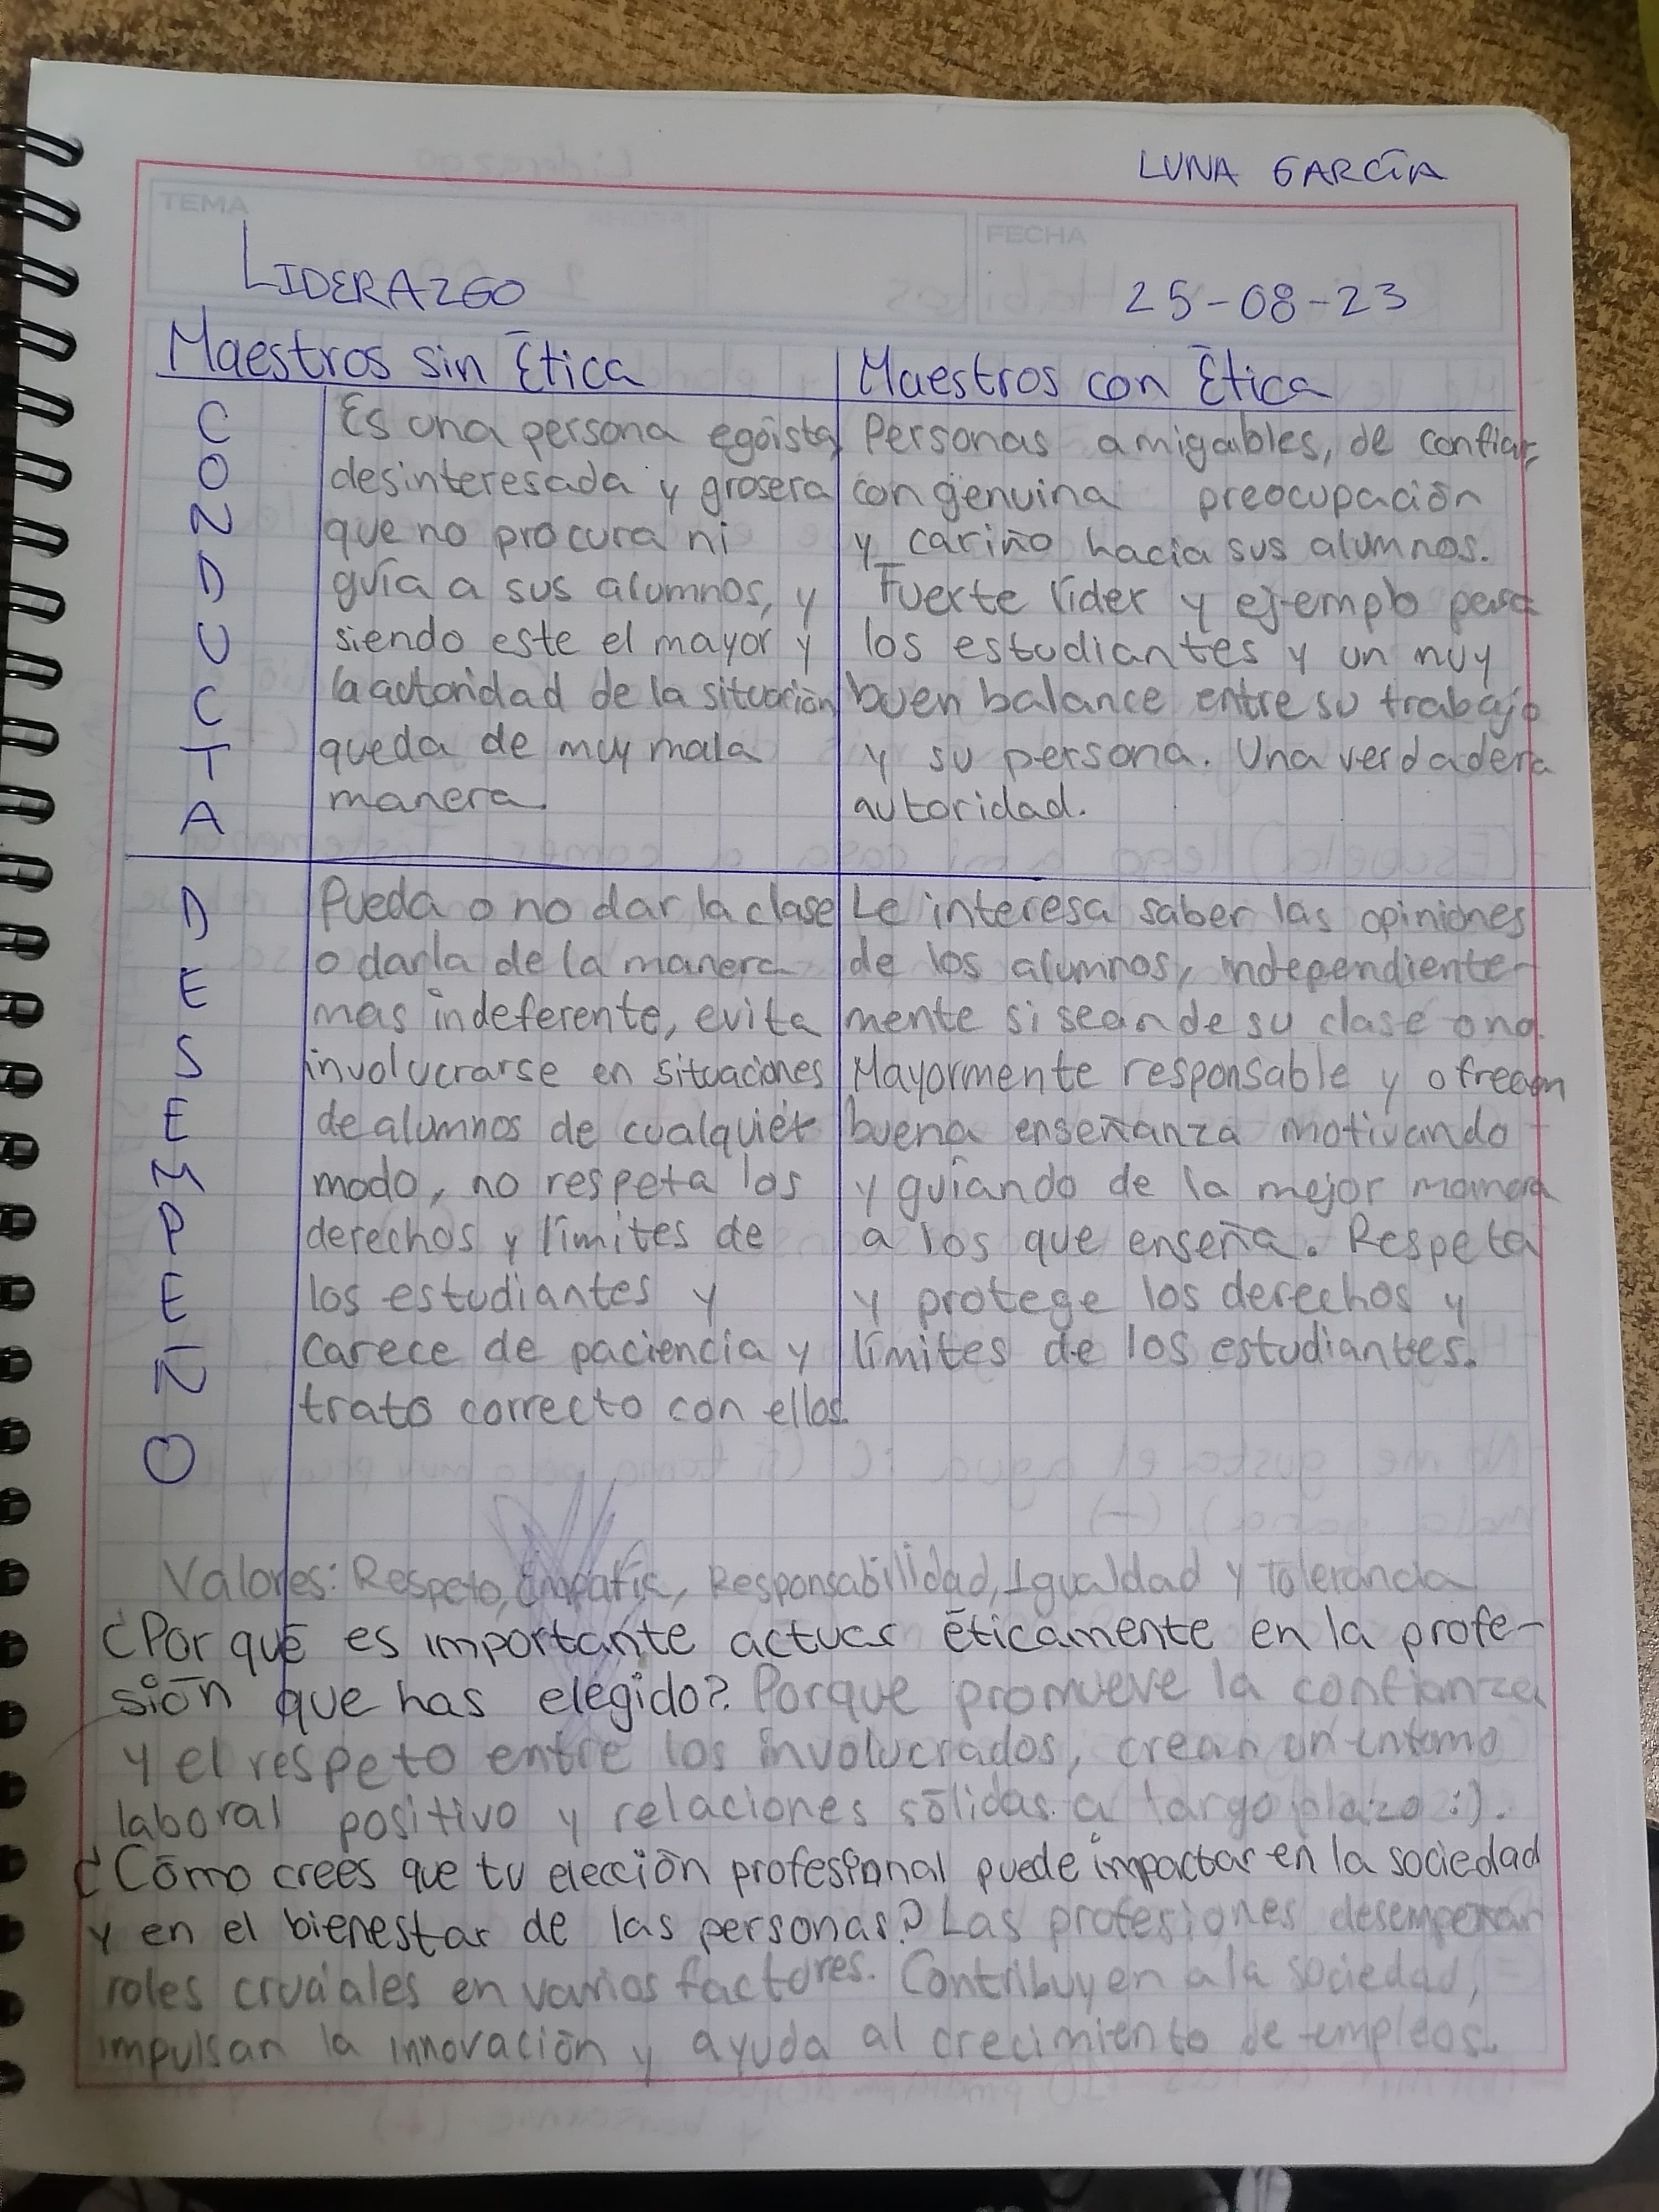 LUNA GARCÍA
TEMA
FECHA
LIDERAZGO
25-08-23
Maestros sin Ética
Maestros con Ética
CONDUCTA
Es una persona egoísta,
desinteresada y grosera
que no procura ni
guía a sus alumnos, y
siendo este el mayor y
la autoridad de la situación
queda de muy mala
manera.
Personas amigables, de confiar,
con genuina preocupación
y cariño hacia sus alumnos.
Fuerte líder y ejemplo para
los estudiantes y un muy
buen balance entre su trabajo
y su persona. Una verdadera
autoridad.
DESEMPEÑO
Pueda o no dar la clase
o darla de la manera
mas indeferente, evita
involucrarse en situaciones
de alumnos de cualquier
modo, no respeta los
derechos y límites de
los estudiantes y
carece de paciencia y
trato correcto con ellos.
Le interesa saber las opiniones
de los alumnos, independiente-
mente si sean de su clase o no.
Mayormente responsable y ofrecen
buena enseñanza motivando
y guiando de la mejor manera
a los que enseña. Respeta
y protege los derechos y
límites de los estudiantes.
Valores: Respeto, Empatía, Responsabilidad, Igualdad y Tolerancia
¿Por qué es importante actuar éticamente en la profe-
sión que has elegido? Porque promueve la confianza
y el respeto entre los involucrados, crean un entorno
laboral positivo y relaciones sólidas a largo plazo :).
¿Cómo crees que tu elección profesional puede impactar en la sociedad
y en el bienestar de las personas? Las profesiones desempeñan
roles cruciales en varios factores. Contribuyen a la sociedad,
impulsan la innovación y ayuda al crecimiento de empleos.